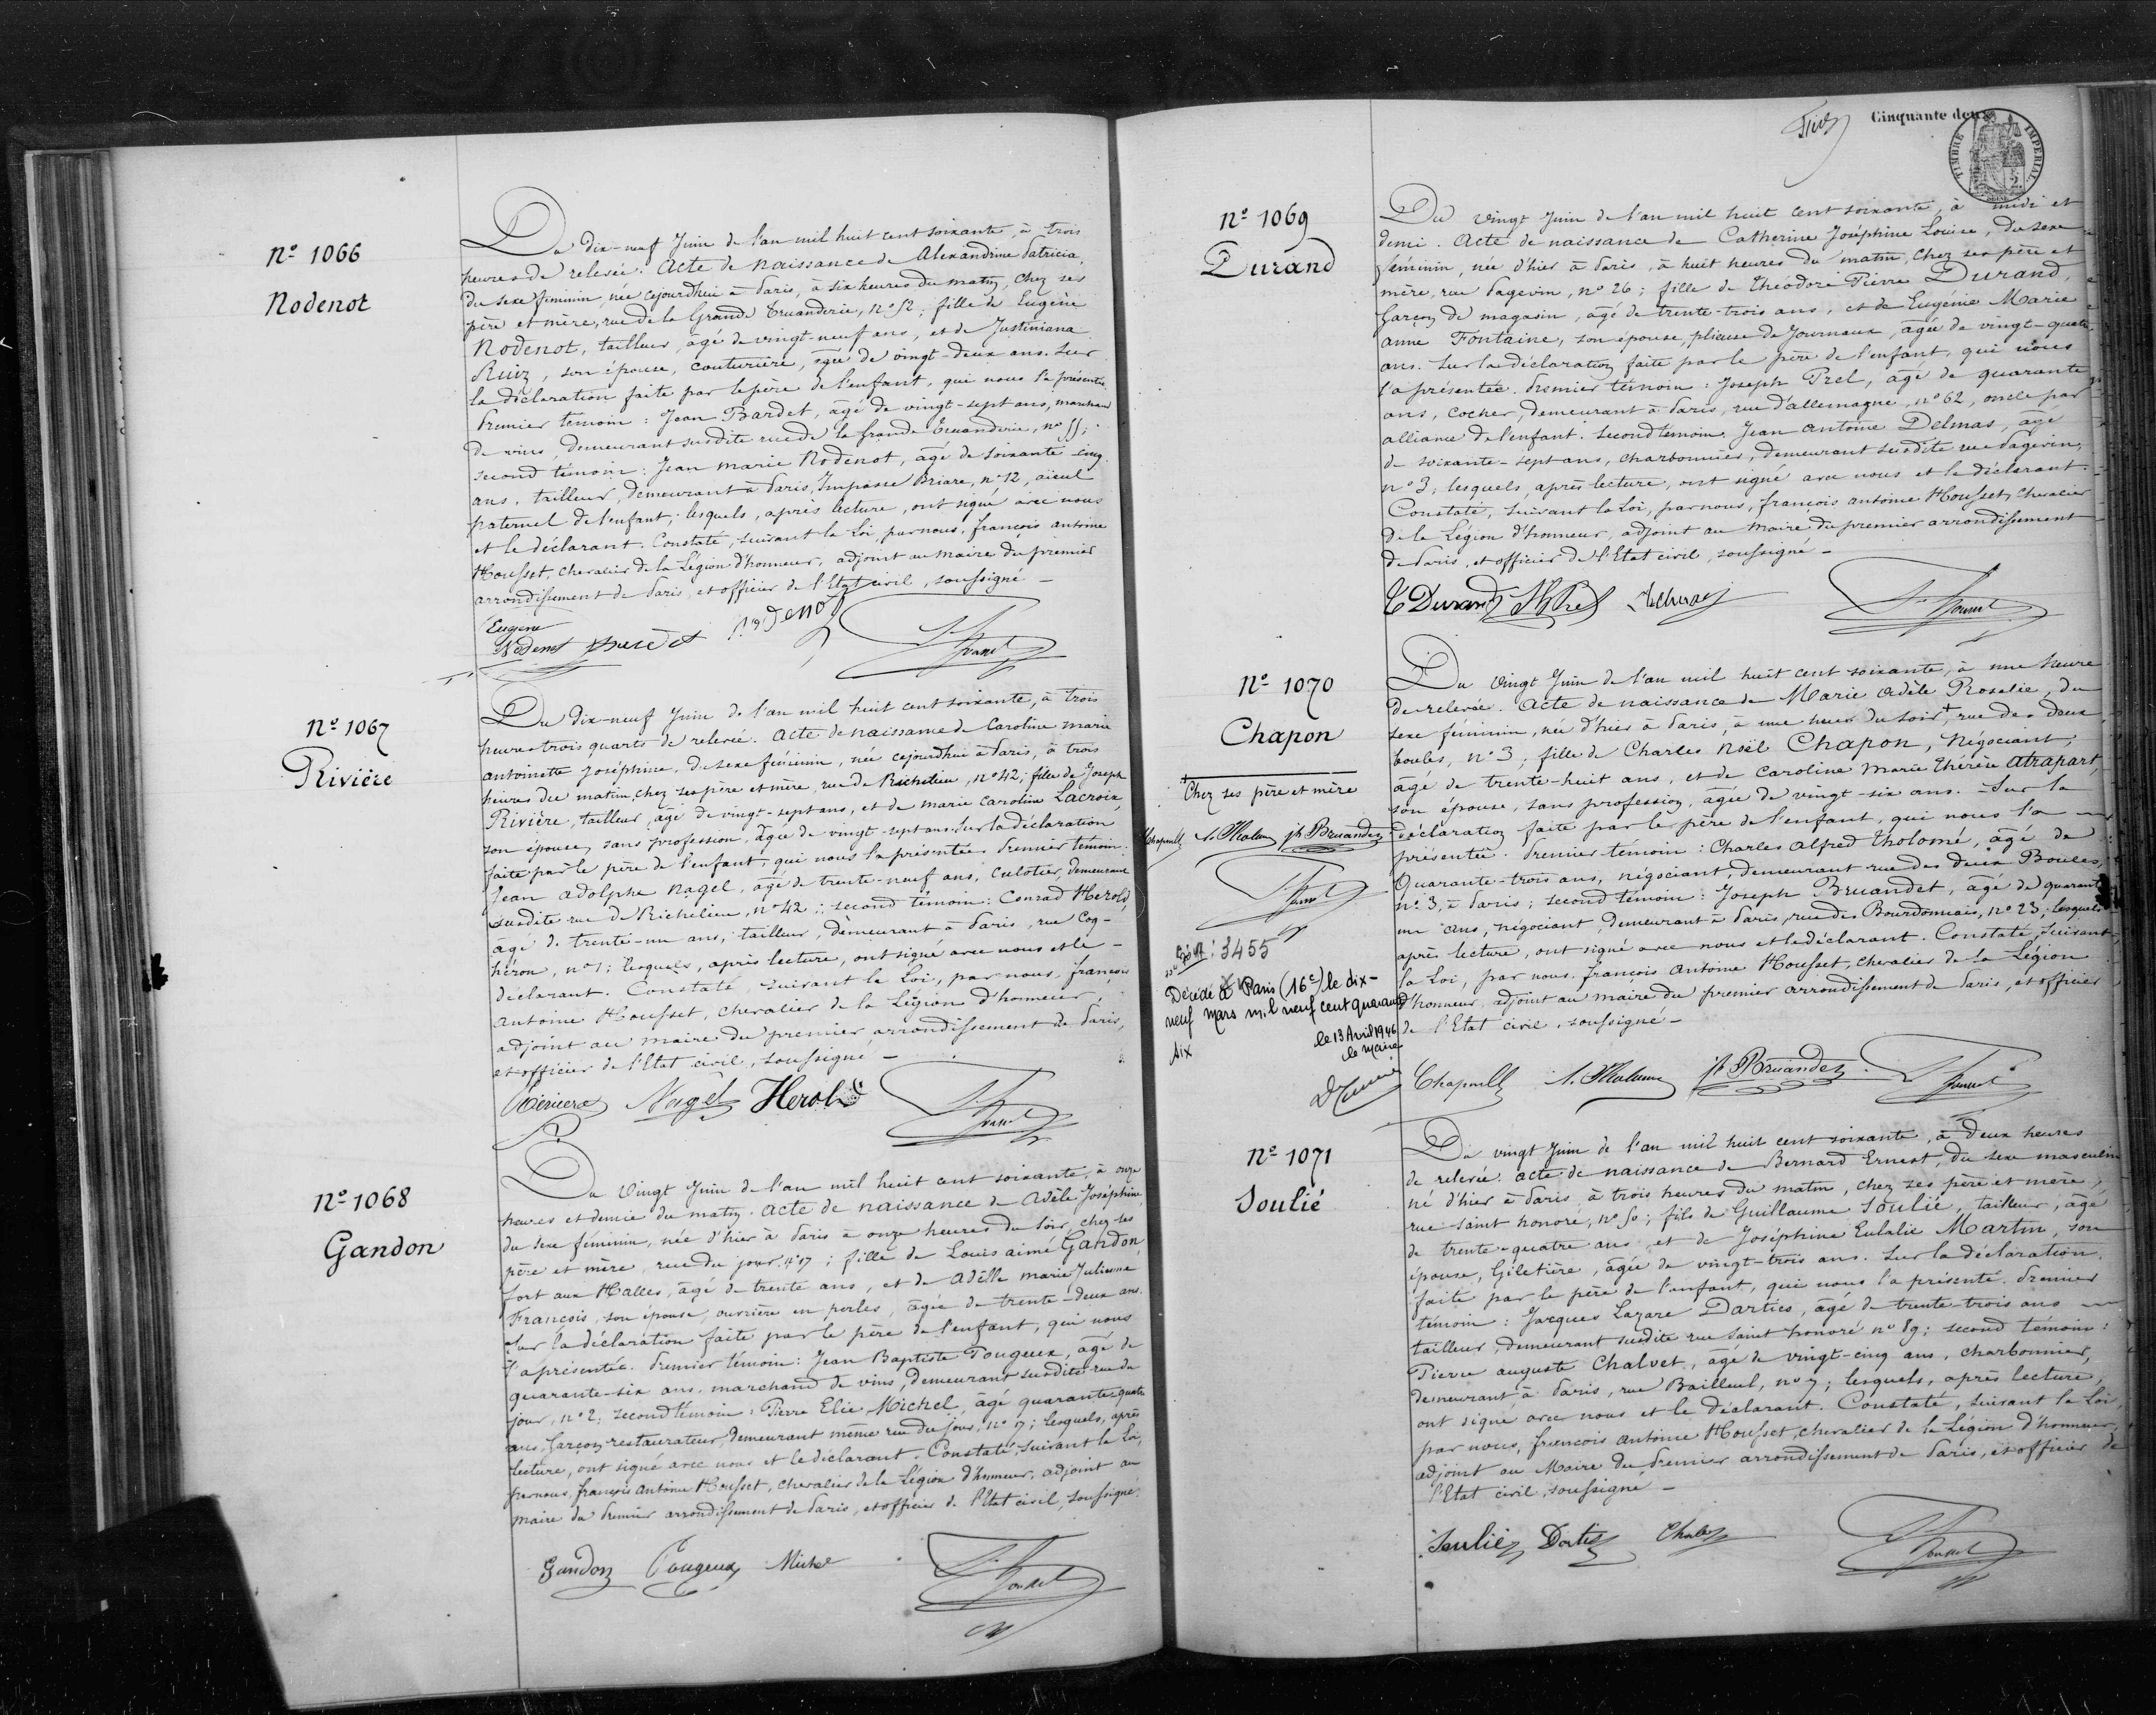 Nº 1066
Nodenot
Du dix-neuf Juin de l'an mil huit cent soixante, à trois
heures de relevée. Acte de naissance de Alexandrine Patricia,
du sexe féminin, née cejourdhui à Paris, à six heures du matin, chez ses
père et mère, rue de la Grande Truanderie, nº 52; fille de Eugène
Nodenot, tailleur, âgé de vingt-neuf ans, et de Justiniana
Ruiz, son épouse, couturière, âgée de vingt-deux ans. Sur
la déclaration faite par le père de l'enfant, qui nous l'a présentée.
Premier témoin: Jean Bardet, âgé de vingt-sept ans, marchand
de vins, demeurant susdite rue de la grande Truanderie, nº 55;
second témoin: Jean marie Nodenot, âgé de soixante-cinq
ans, tailleur, demeurant à Paris, Impasse Briare, nº 12, aïeul
paternel de l'enfant; lesquels, après lecture, ont signé avec nous
et le déclarant. Constaté, suivant la Loi, par nous, françois antoine
Housset, chevalier de la Légion d'honneur, adjoint au maire du premier
arrondissement de Paris, et officier de l'Etat civil, soussigné -
Eugene
Nodenot Bardet Nodenot
Nº 1067
Rivière
Du dix-neuf Juin de l'an mil huit cent soixante, à trois
heures trois quarts de relevée. Acte de naissance de Caroline marie
antoinette Joséphine, du sexe féminin, née cejourdhui à Paris, à trois
heures du matin, chez ses père et mère, rue de Richelieu, nº 42; fille de Joseph
Rivière, tailleur, âgé de vingt-sept ans, et de marie Caroline Lacroix,
son épouse, sans profession, âgée de vingt-sept ans. Sur la déclaration
faite par le père de l'enfant, qui nous l'a présentée. Premier témoin:
Jean adolphe Nagel, âgé de trente-neuf ans, culotier, demeurant
susdite rue de Richelieu, nº 42; second témoin: Conrad Herold,
âgé de trente-un ans, tailleur, demeurant à Paris, rue Coq-
héron, nº 1; lesquels, après lecture, ont signé avec nous et le -
déclarant. Constaté, suivant la Loi, par nous, françois
antoine Housset, chevalier de la Légion d'honneur,
adjoint au maire du premier arrondissement de Paris,
et officier de l'Etat civil, soussigné -
Riviere Nagel Herold
Nº 1068
Gandon
Du Vingt Juin de l'an mil huit cent soixante, à onze
heures et demie du matin. Acte de naissance de Adèle Joséphine,
du sexe féminin, née d'hier à Paris à onze heures du soir, chez ses
père et mère, rue du jour, nº 17; fille de Louis aimé Gandon,
fort aux Halles, âgé de trente ans, et de Adèle marie Julienne
François, son épouse, ouvrière en perles, âgée de trente-deux ans.
Sur la déclaration faite par le père de l'enfant, qui nous
l'a présentée. Premier témoin: Jean Baptiste Tougeux, âgé de
quarante-six ans, marchand de vins, demeurant susdite rue du
jour, nº 2; second témoin: Pierre Elie Michel, âgé quarante-quatre
ans, garçon restaurateur, demeurant même rue du jour, nº 17; lesquels, après
lecture, ont signé avec nous et le déclarant. Constaté, suivant la Loi,
par nous, françois antoine Housset, chevalier de la Légion d'honneur, adjoint au
maire du Premier arrondissement de Paris, et officier de l'Etat civil, soussigné.
Gandon Tougeux Michel
Cinquante deux
TIMBRE IMPERIAL
SEINE
Nº 1069
Durand
Du Vingt Juin de l'an mil huit cent soixante, à midi et
demi. Acte de naissance de Catherine Joséphine Louise, du sexe
féminin, née d'hier à Paris, à huit heures du matin, chez ses père et
mère, rue Pagevin, nº 26; fille de Théodore Pierre Durand,
Garçon de magasin, âgé de trente-trois ans, et de Eugénie Marie
anne Fontaine, son épouse, plieuse de Journaux, âgée de vingt-quatre
ans. Sur la déclaration faite par le père de l'enfant, qui nous
l'a présentée. Premier témoin: Joseph Prel, âgé de quarante
ans, cocher, demeurant à Paris, rue d'allemagne, nº 62, oncle par
alliance de l'enfant. Second témoin: Jean Antoine Delmas, âgé
de soixante-sept ans, charbonnier, demeurant susdite rue Pagevin,
nº 3; lesquels, après lecture, ont signé avec nous et le déclarant.
Constaté, suivant la Loi, par nous, françois antoine Housset, chevalier
de la Légion d'honneur, adjoint au maire du premier arrondissement
de Paris, et officier de l'Etat civil, soussigné -
T Durand Prel Delmas
Nº 1070
Chapon
Chez ses père et mère
Bruandet
3455
Décédé à Paris (16e) le dix-
neuf mars mil neuf cent quarante
six
le 13 Avril 1946
le Maire
Du Vingt Juin de l'an mil huit cent soixante, à une heure
de relevée. Acte de naissance de Marie Adèle Rosalie, du
sexe féminin, née d'hier à Paris, à une heure du soir, rue des Deux
boules, nº 3; fille de Charles Noël Chapon, Négociant,
âgé de trente-huit ans, et de Caroline Marie Thérèse Atrapart,
son épouse, sans profession, âgée de vingt-six ans. Sur la
déclaration faite par le père de l'enfant, qui nous l'a
présentée. Premier témoin: Charles Alfred Tholomé, âgé de
Quarante-trois ans, négociant, demeurant rue des deux Boules,
nº 3, à Paris; second témoin: Joseph Bruandet, âgé de quarante
un ans, négociant, demeurant à Paris, rue des Bourdonnais, nº 23; lesquels
après lecture, ont signé avec nous et le déclarant. Constaté, suivant
la Loi, par nous, françois Antoine Housset, chevalier de la Légion
d'honneur, adjoint au maire du premier arrondissement de Paris, et officier
de l'Etat civil, soussigné -
Bruandet
Nº 1071
Soulié
Du vingt Juin de l'an mil huit cent soixante, à Deux heures
de relevée. Acte de naissance de Bernard Ernest, du sexe masculin
né d'hier à Paris à trois heures du matin, chez ses père et mère,
rue saint honoré, nº 50; fils de Guillaume Soulié, tailleur, âgé
de trente-quatre ans et de Joséphine Eulalie Martin, son
épouse, Giletière, âgée de vingt-trois ans. Sur la déclaration
faite par le père de l'enfant, qui nous l'a présenté. Premier
témoin: Jacques Lazare Darties, âgé de trente-trois ans
tailleur, demeurant susdite rue saint honoré nº 89; second témoin:
Pierre auguste Chalvet, âgé de vingt-cinq ans, charbonnier,
demeurant à Paris, rue Bailleul, nº 7; lesquels, après lecture,
ont signé avec nous et le déclarant. Constaté, suivant la Loi,
par nous, francois antoine Housset, chevalier de la Légion d'honneur,
adjoint au Maire du Premier arrondissement de Paris, et officier de
l'Etat civil, soussigné -
Soulié